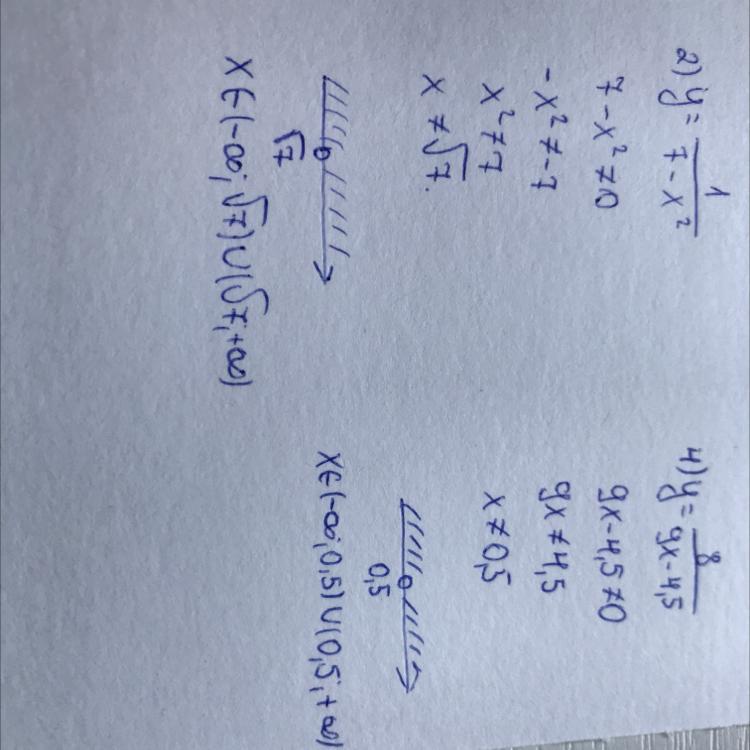 2) y = 1/(7 - x²)
7 - x² ≠ 0
-x² ≠ -7
x² ≠ 7
x ≠ √7.
√7
x ∈ (-∞; √7) ∪ (√7; +∞)
4) y = 8/(9x - 4,5)
9x - 4,5 ≠ 0
9x ≠ 4,5
x ≠ 0,5
0,5
x ∈ (-∞; 0,5) ∪ (0,5; +∞)